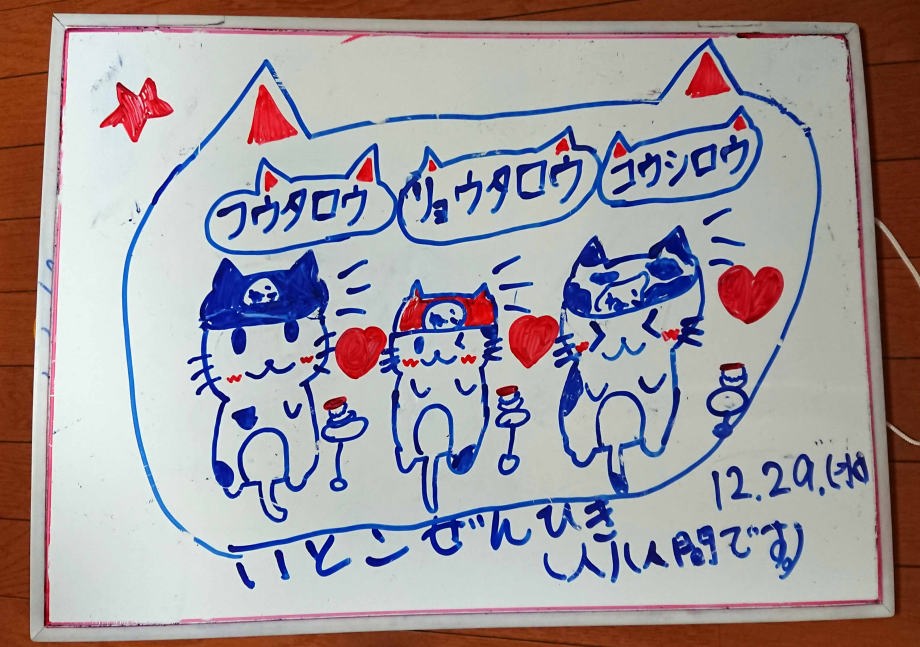 フウタロウ
リョウタロウ
コウシロウ
12.29.(水)
いとこぜんひき
人間です)